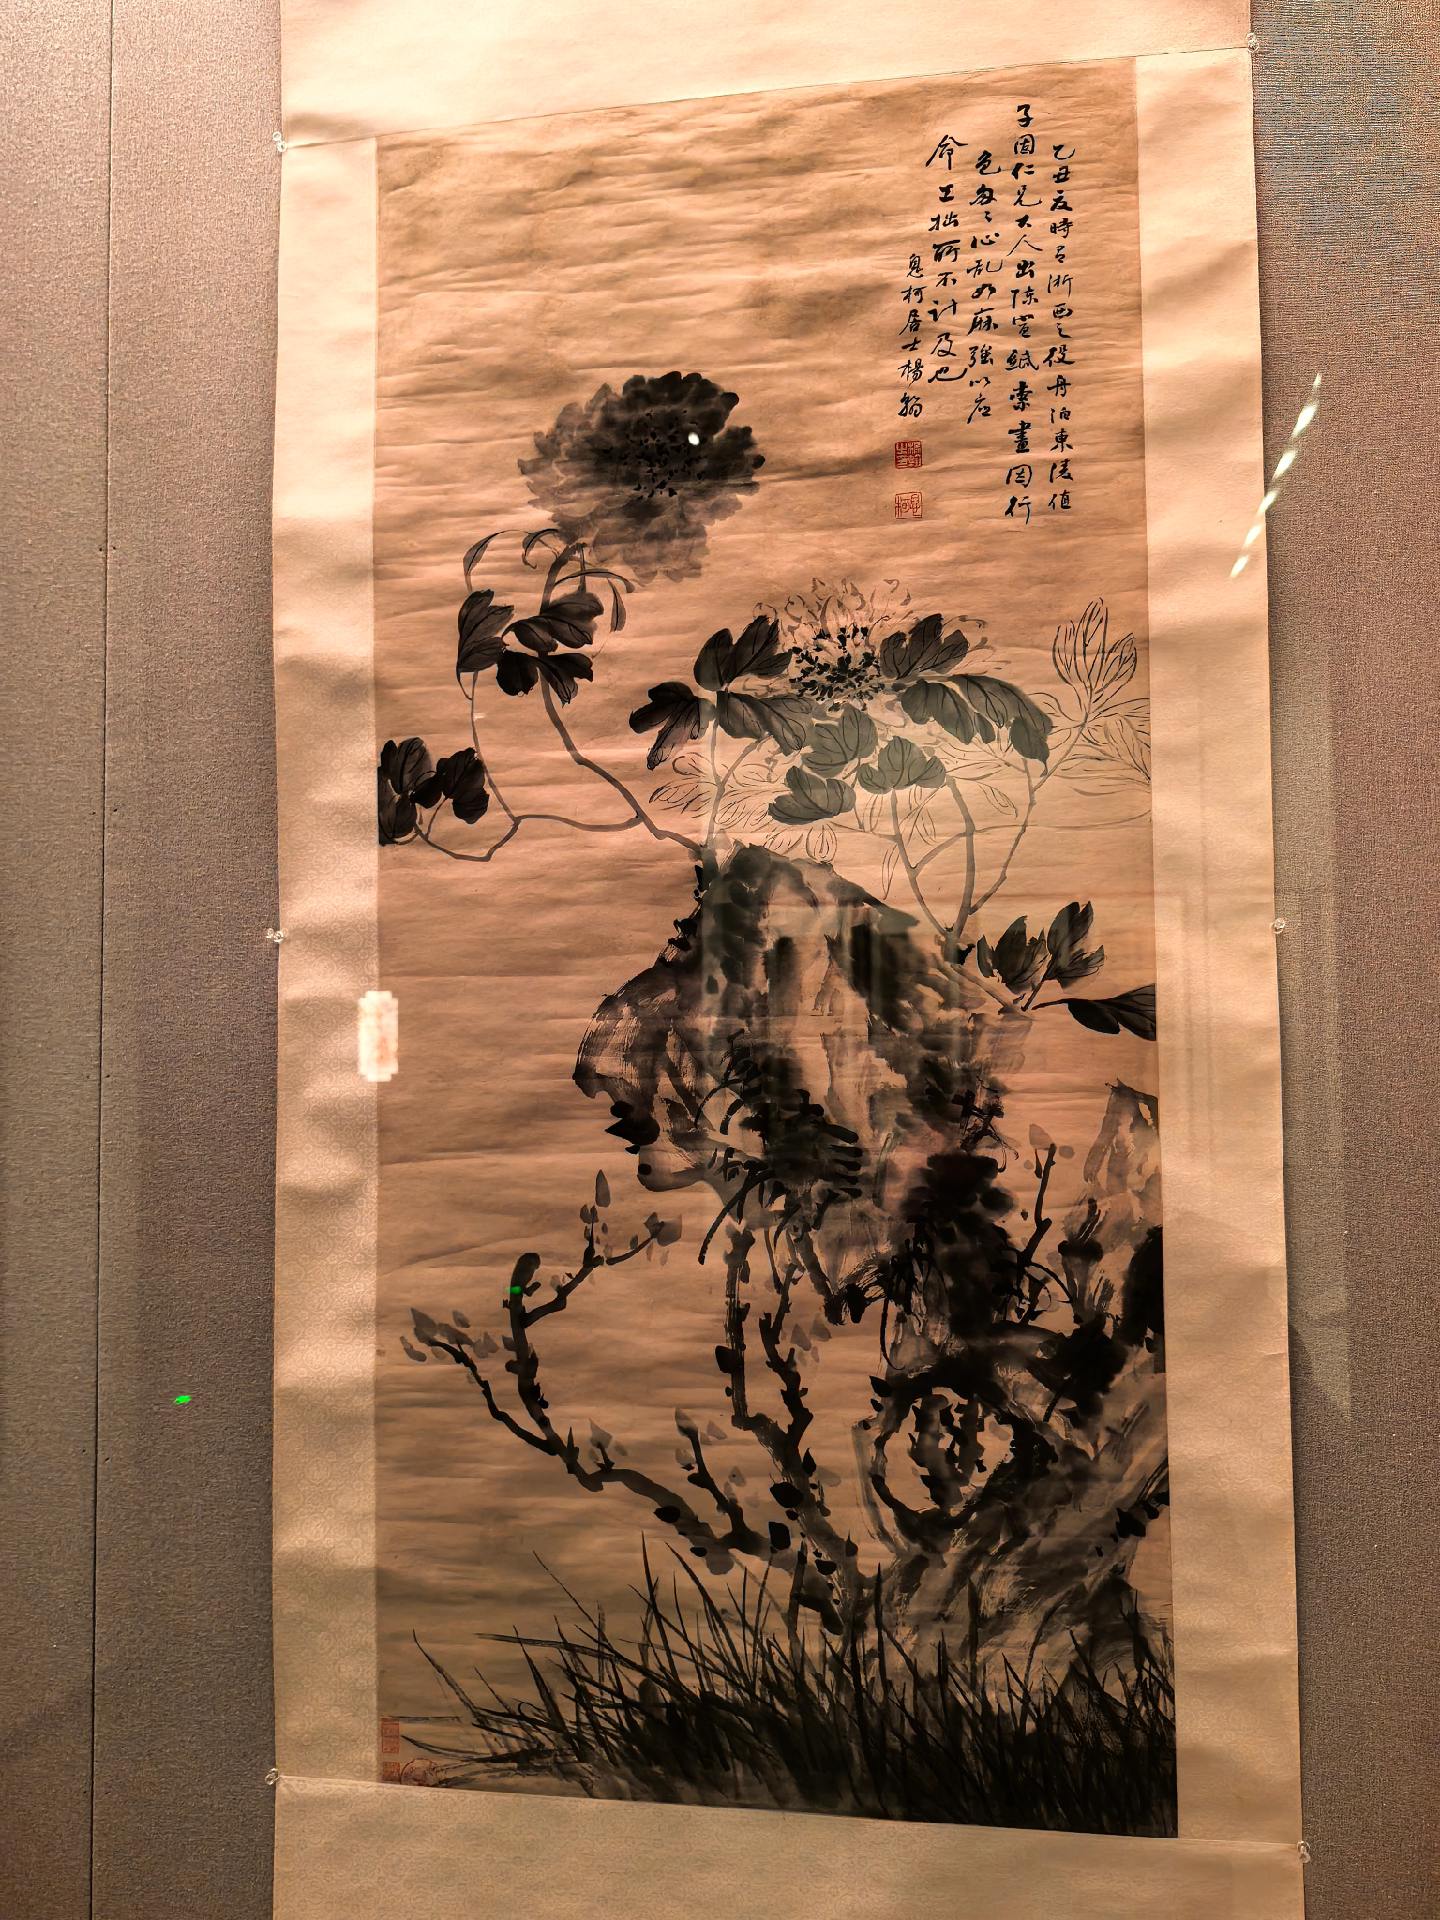 乙丑夏時有浙西之役舟泊東溪值
子固仁兄大人出陈宣紙索畫因行
色匆々心乱如麻強以应
命工拙所不计及也
息柯居士楊翰
息柯